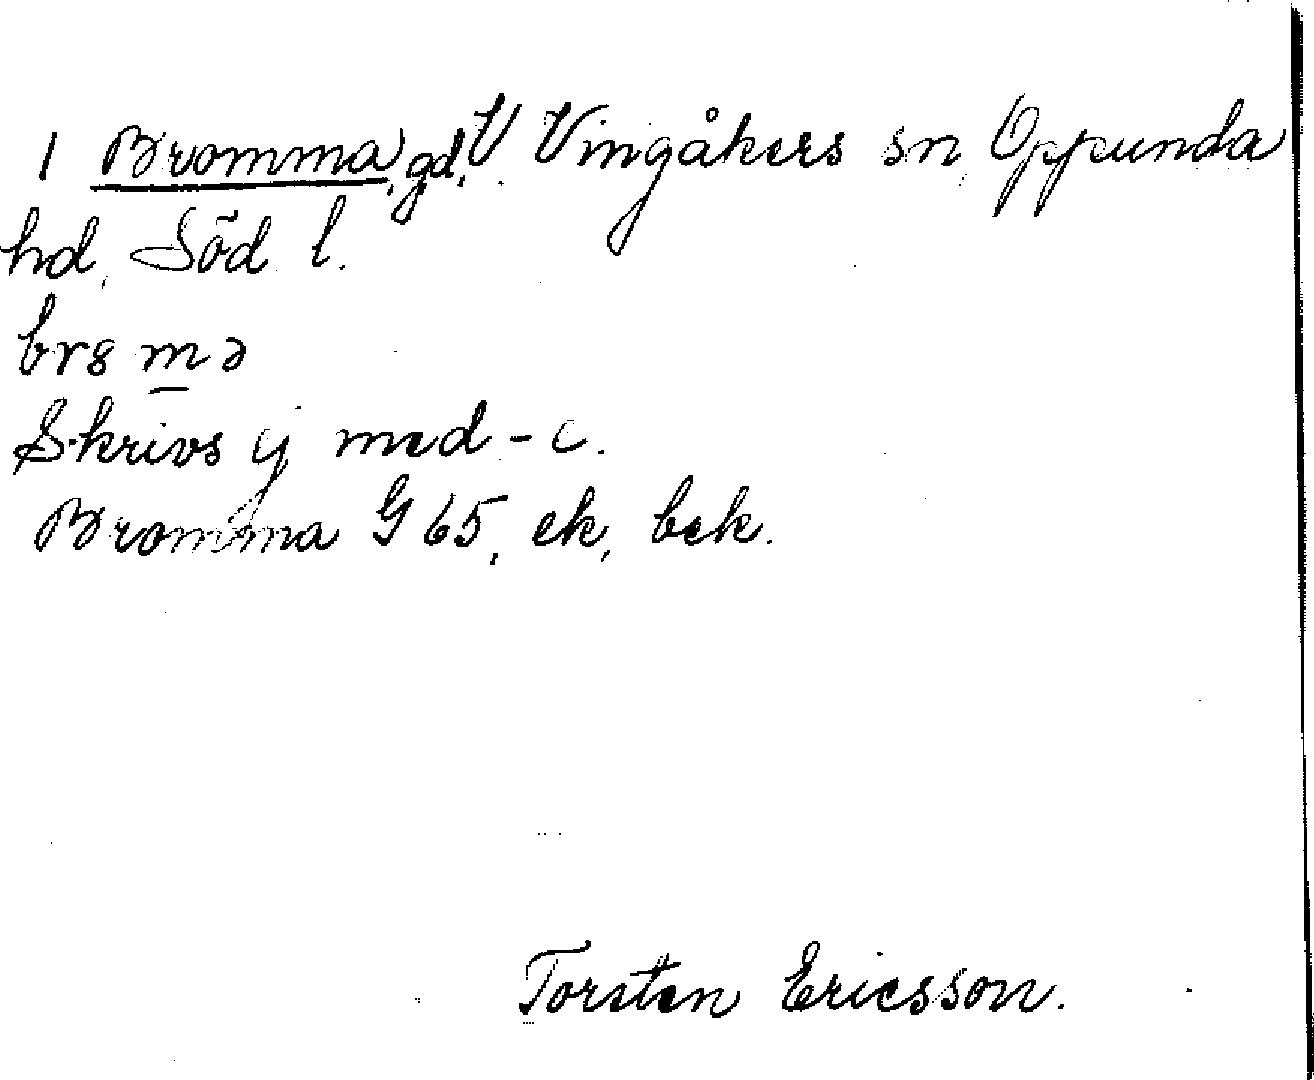 1 Bromma, gd, V. Vingåkers sn, Oppunda
hd, Söd l.
br8 m̲ ə
Skrivs ej med -e.
Bromma G 65, ek, bek.
Torsten Ericsson.